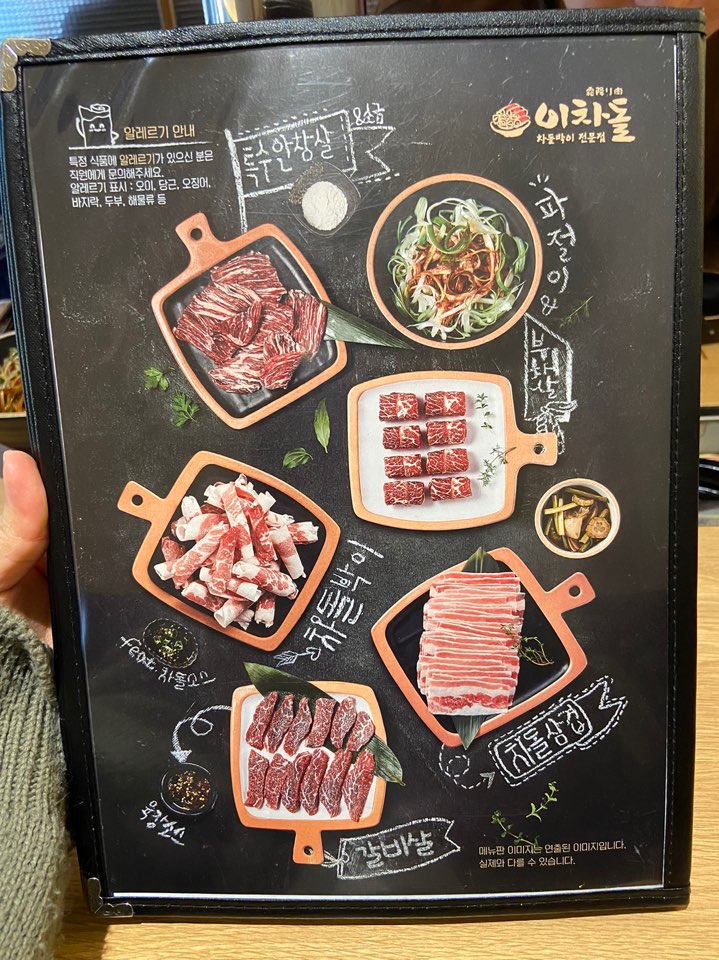 알레르기 안내
특정 식품에 알레르기가 있으신 분은
직원에게 문의해주세요.
알레르기 표시 : 오이, 당근, 오징어,
바지락, 두부, 해물류 등
특수안창살
&소금
霜降り肉
이차돌
차돌박이 전문점
파절이
&
부채살
차돌박이
feat. 차돌소스
차돌삼겹
육장소스
갈비살
메뉴판 이미지는 연출된 이미지입니다.
실제와 다를 수 있습니다.